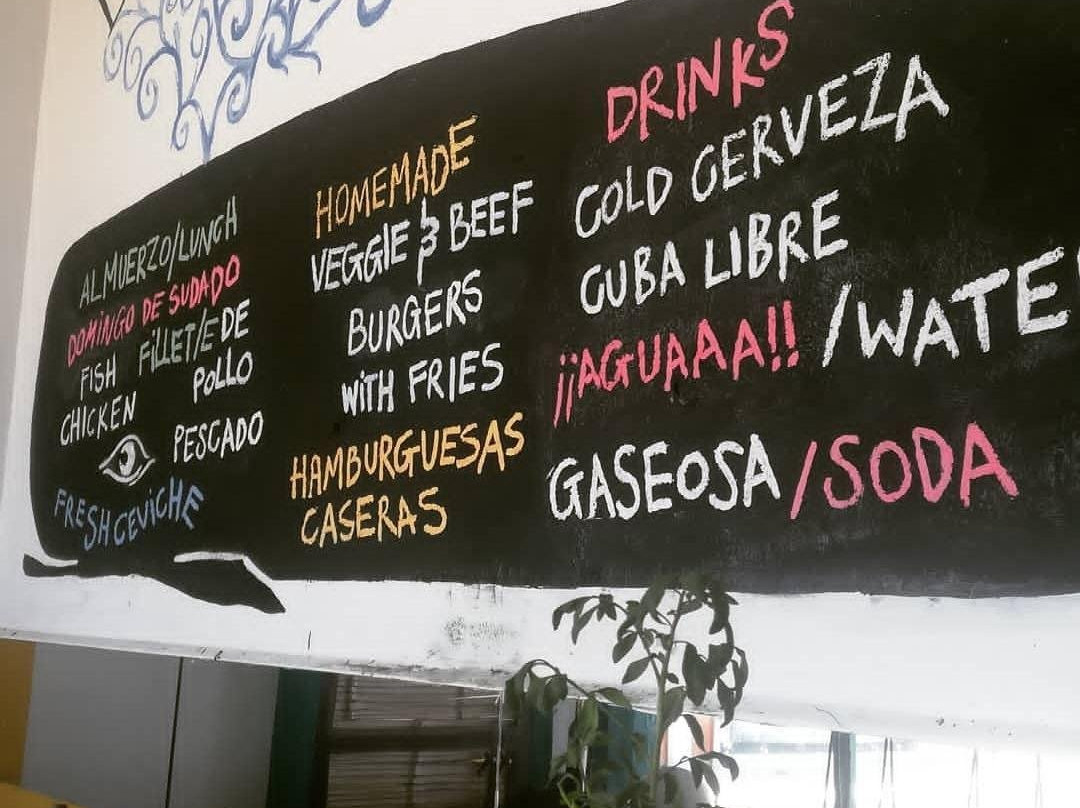 ALMUERZO/LUNCH
DOMINGO DE SUDADO
FISH FILLET/E DE
CHICKEN POLLO
PESCADO
FRESH CEVICHE
HOMEMADE
VEGGIE & BEEF
BURGERS
WITH FRIES
HAMBURGUESAS
CASERAS
DRINKS
COLD CERVEZA
CUBA LIBRE
¡¡AGUAAA!! /WATE
GASEOSA/SODA